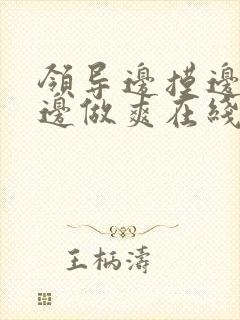 領导邊摸邊
邊做爽在綫
王柄濤